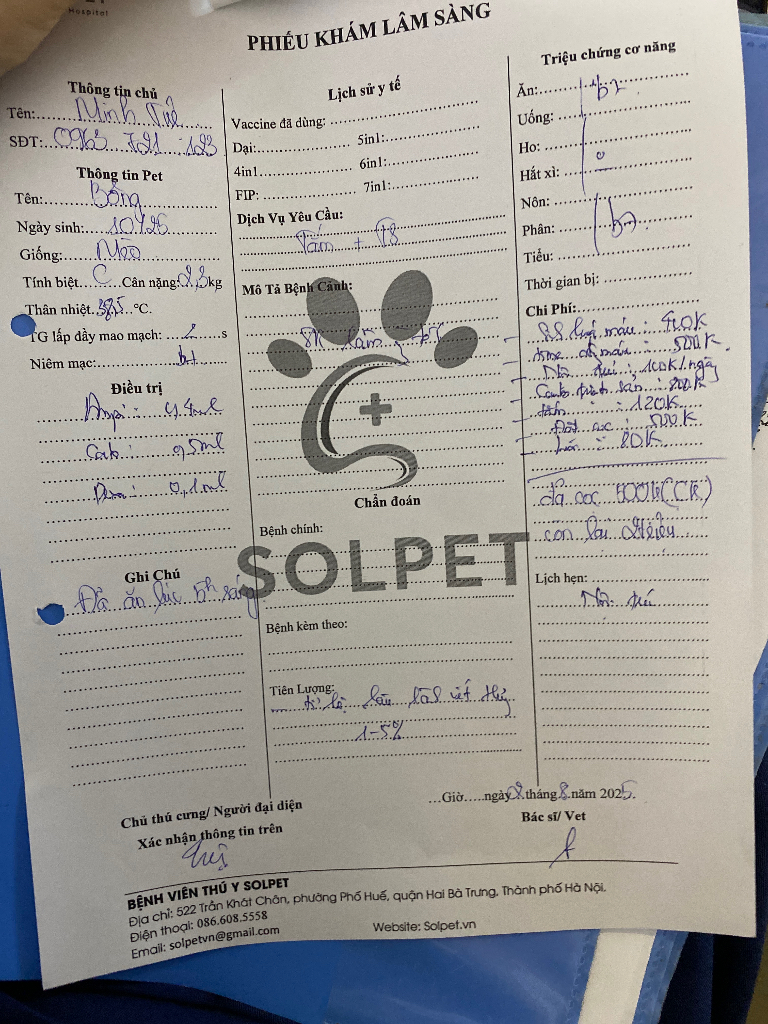 Hospital
PHIẾU KHÁM LÂM SÀNG
Thông tin chủ
Tên: Minh Tuệ
SĐT: 0963 721 123
Thông tin Pet
Tên: Bống
Ngày sinh:
Giống: Mèo
Tính biệt C Cân nặng: 2,3kg
Thân nhiệt 38,5 °C.
TG lấp đầy mao mạch: 2 s
Niêm mạc: bt
Điều trị
Ampi: 0,4ml
Catb: 0,5ml
Dexa: 0,1ml
Ghi Chú
Đã ăn lúc 5h sáng
Lịch sử y tế
Vaccine đã dùng:
Dại: 5in1:
4in1 6in1:
FIP: 7in1:
Dịch Vụ Yêu Cầu:
Tắm + TS
Mô Tả Bệnh Cảnh:
SK
Chẩn đoán
Bệnh chính:
SOLPET
Bệnh kèm theo:
Tiên Lượng:
1-5%
Triệu chứng cơ năng
Ăn: bt
Uống:
Ho:
Hắt xì:
Nôn:
Phân: bt
Tiểu:
Thời gian bị:
Chi Phí:
máu: 40K
máu: 500K
Nội trú: 100K/ngày
sản: 800K
tắm: 120K
Đặt cọc: 500K
: 80K
đã cọc 500K (CK)
còn lại
Lịch hẹn:
Nội trú
Chủ thú cưng/ Người đại diện
Xác nhận thông tin trên
Tuệ
…Giờ…..ngày 2 tháng 8 năm 2025.
Bác sĩ/ Vet
BỆNH VIỆN THÚ Y SOLPET
Địa chỉ: 522 Trần Khát Chân, phường Phố Huế, quận Hai Bà Trưng, Thành phố Hà Nội.
Điện thoại: 086.608.5558
Email: solpetvn@gmail.com Website: Solpet.vn